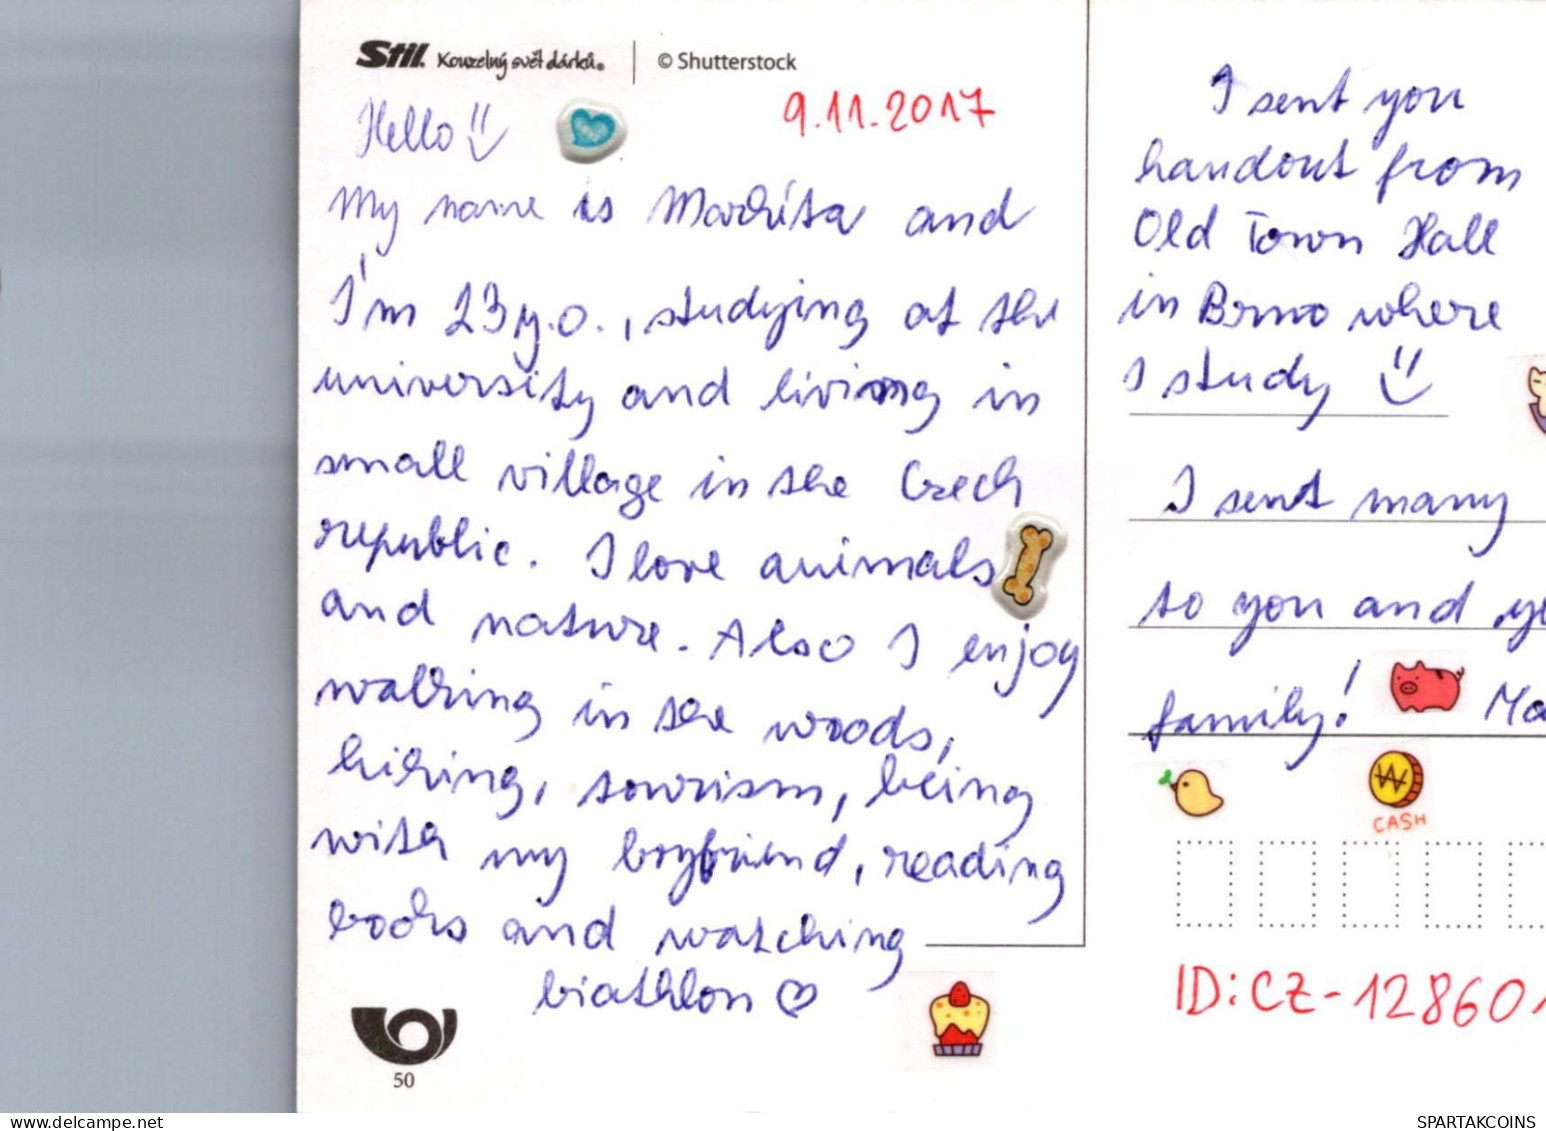 Stil. Kouzelný svět dárků. © Shutterstock
9.11.2017
Hello
My name is Markéta and
I'm 23 y.o., studying at the
university and living in
small village in the Czech
republic. I love animals
and nature. Also I enjoy
walking in the woods,
hiking, tourism, being
with my boyfriend, reading
books and watching
biathlon
50
I sent you
handout from
Old Town Hall
in Brno where
I study
I sent many
to you and
family! Ma
CASH
ID: CZ-12860
eu.delcampe.net
SPARTAKCOINS